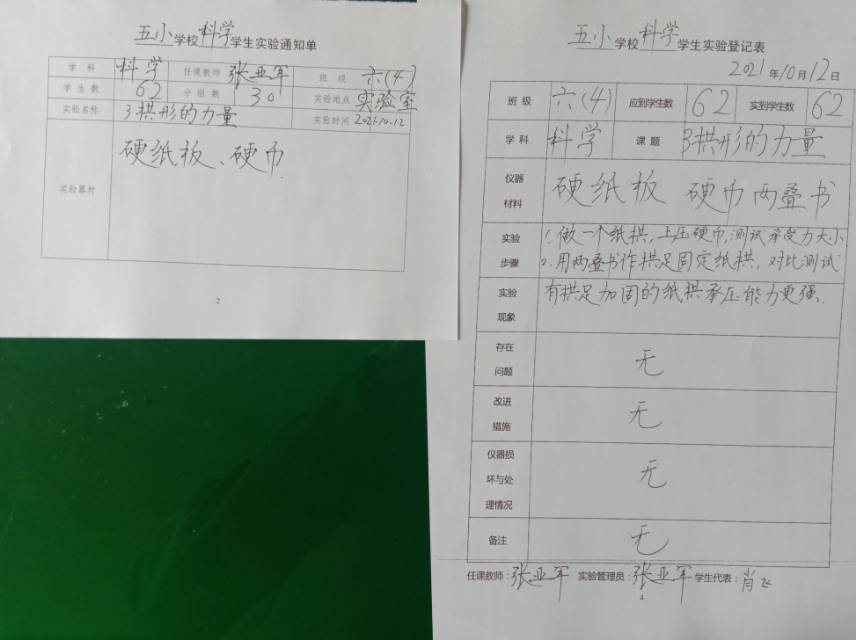 五小学校科学学生实验通知单
学科 科学 任课教师 张亚军 班级 六(4)
学生数 62 分组数 30 实验地点 实验室
实验名称 3拱形的力量 实验时间 2021.10.12
实验器材 硬纸板、硬币
2
五小学校科学学生实验登记表
2021年10月12日
班级 六(4) 应到学生数 62 实到学生数 62
学科 科学 课题 3拱形的力量
仪器材料 硬纸板 硬币 两叠书
实验步骤 1.做一个纸拱,上压硬币,测试承受力大小
2.用两叠书作拱足固定纸拱,对比测试
实验现象 有拱足加固的纸拱承压能力更强.
存在问题 无
改进措施 无
仪器损坏与处理情况 无
备注 无
任课教师:张亚军 实验管理员:张亚军 学生代表:肖飞
4